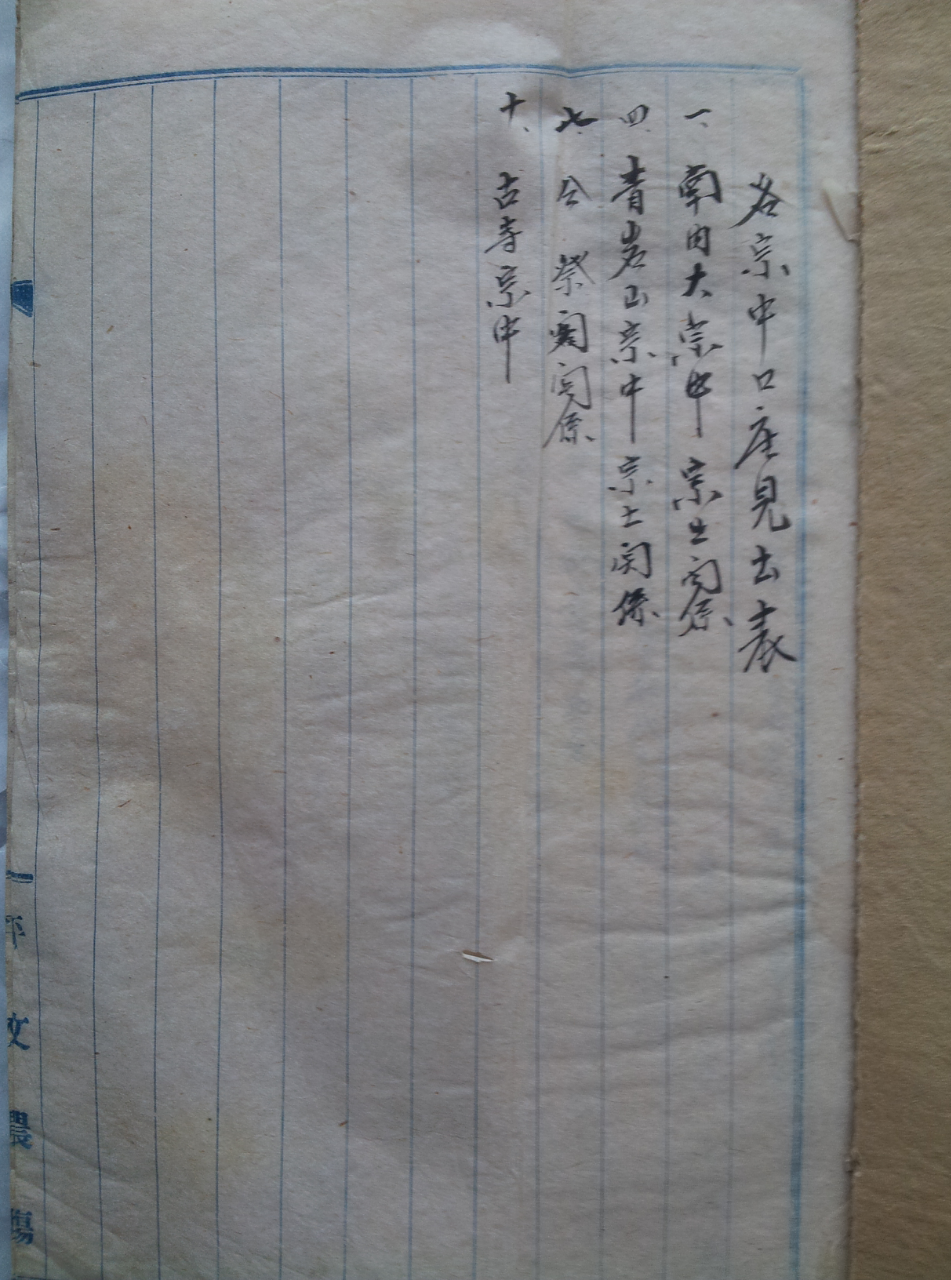 各宗中口座見出表
一、南內大宗中 宗土関係
四、青岩山宗中 宗土関係
七、仝 祭閣関係
十、古寺宗中
文農場